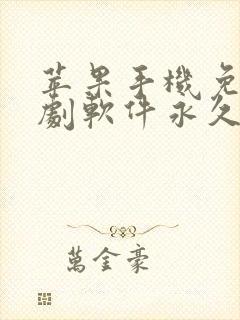 苹果手機免
劇軟件永久
萬金豪